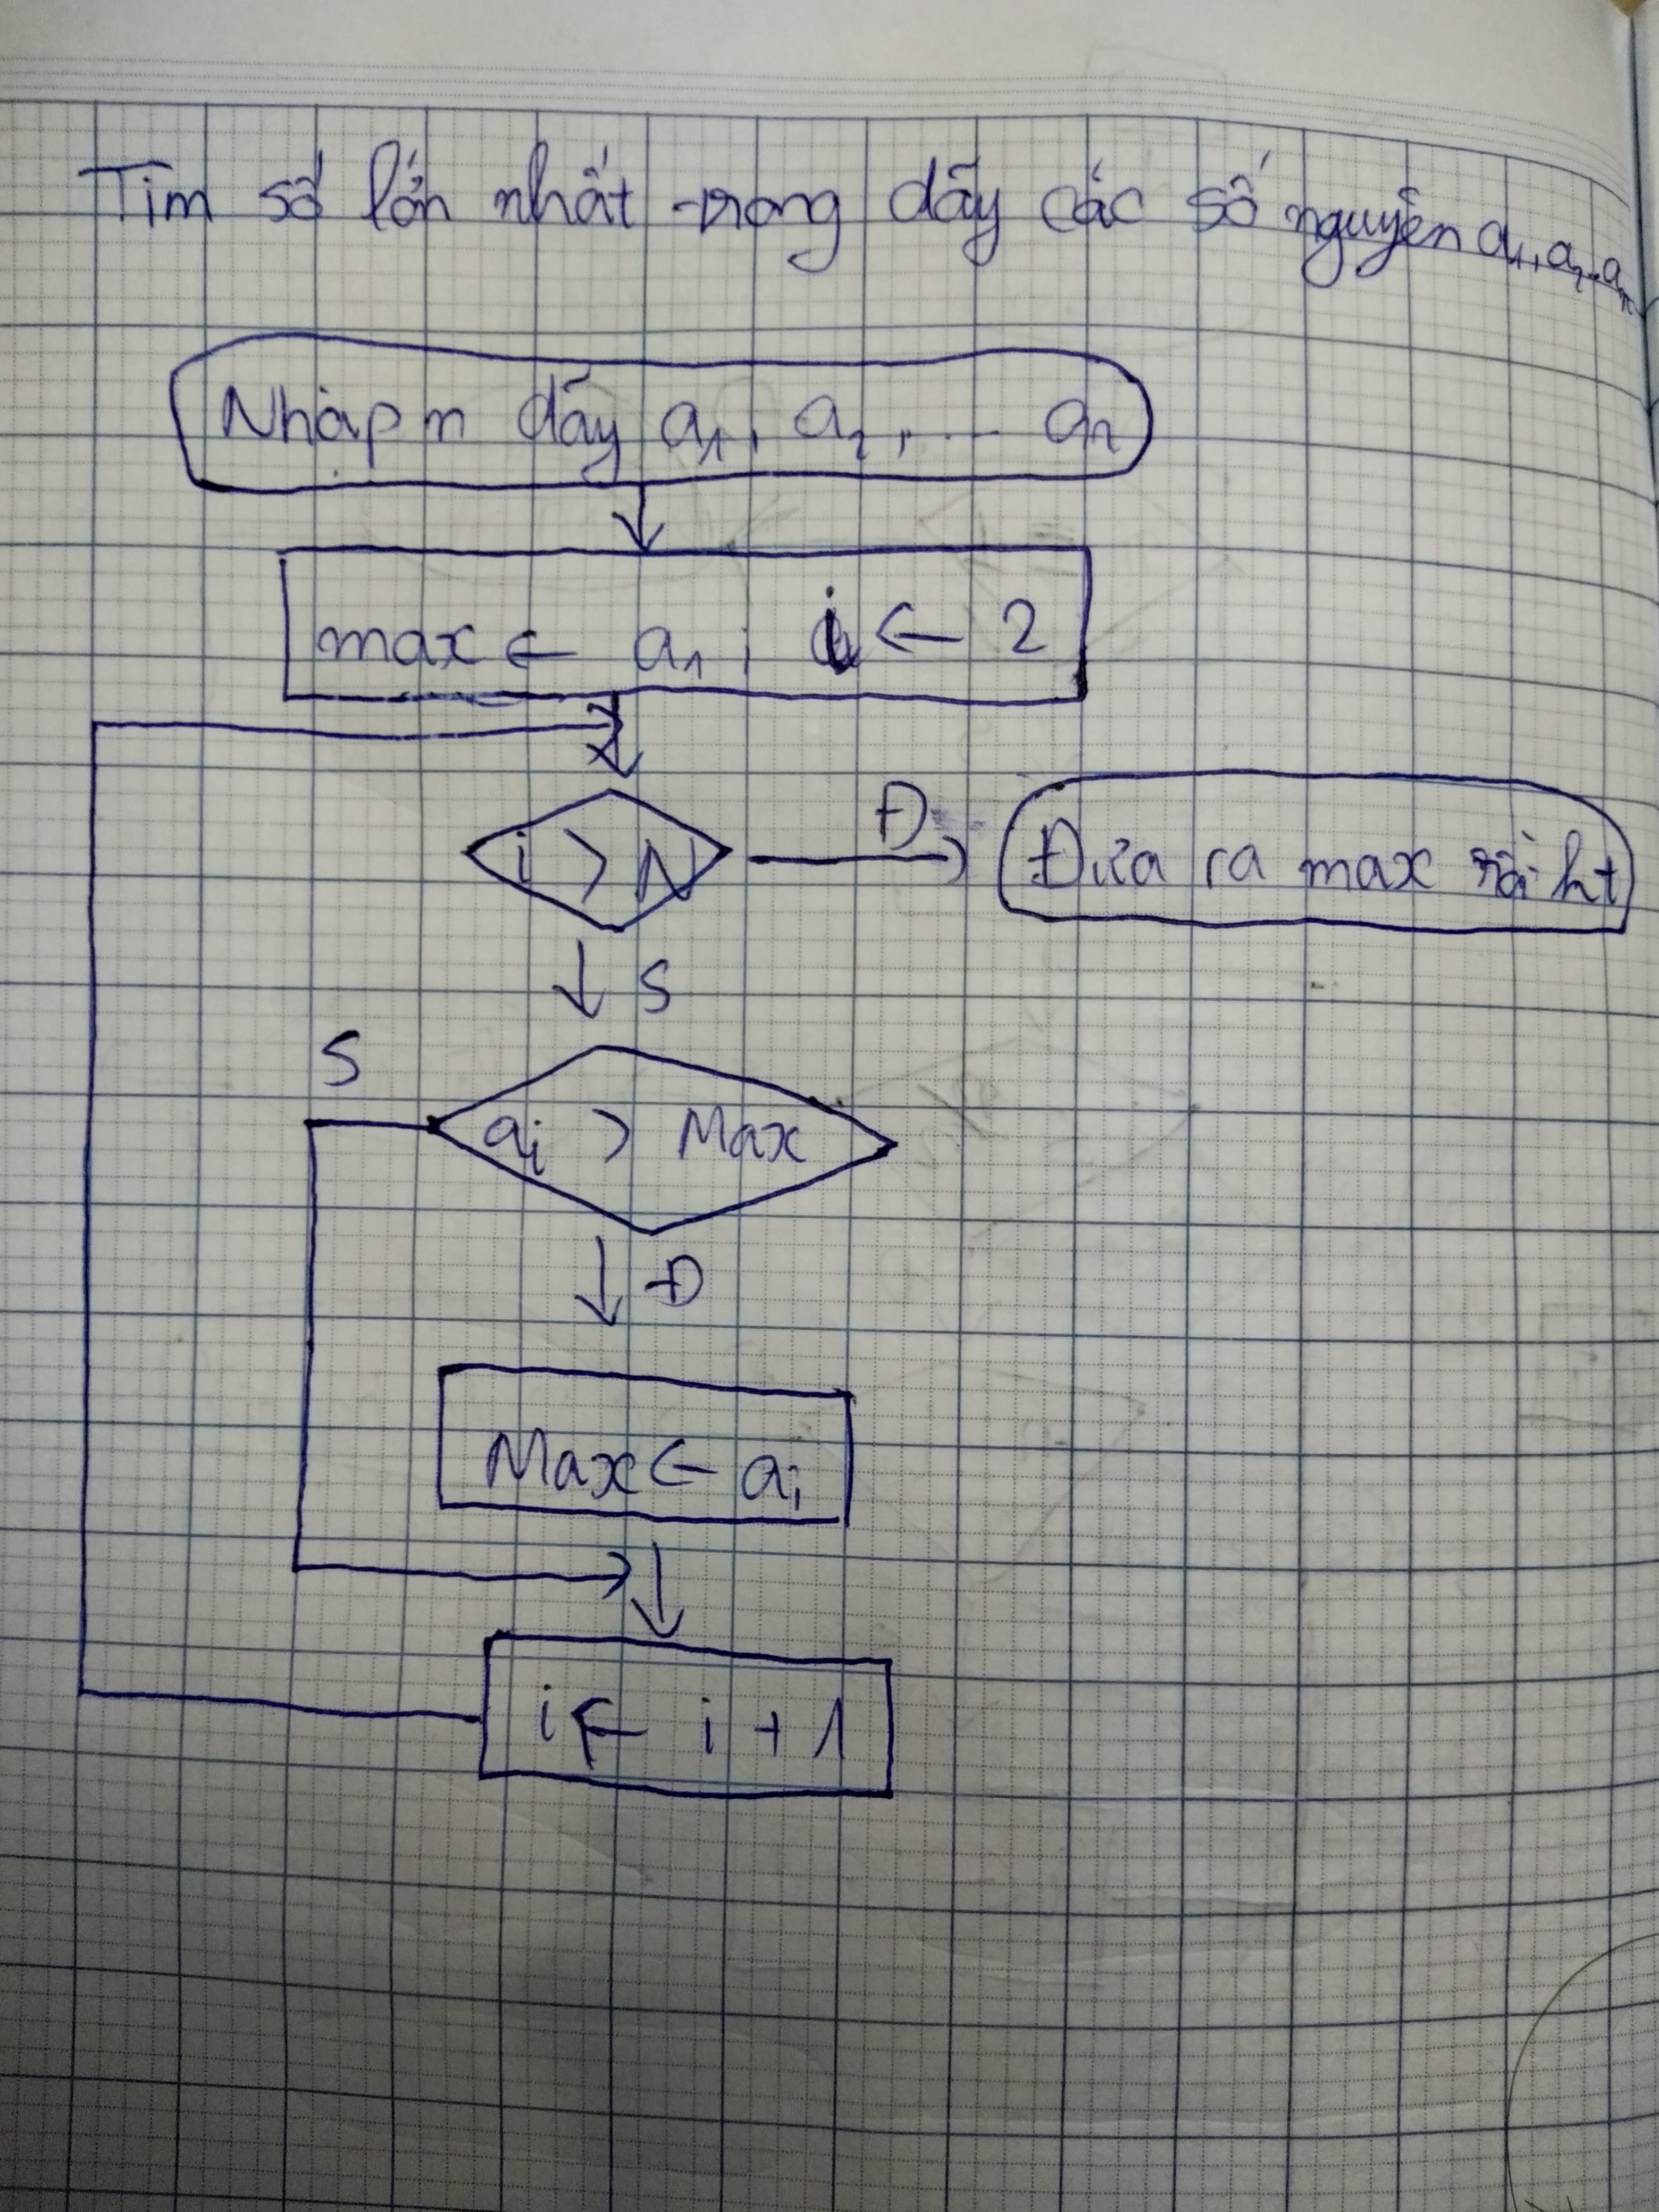 Tìm số lớn nhất trong dãy các số nguyên a1, a2..an
Nhập n dãy a1, a2, ... an
max ← a1; i ← 2
i > N
Đ
Đưa ra max rồi kt
S
S
ai > Max
Đ
Max ← ai
i ← i + 1